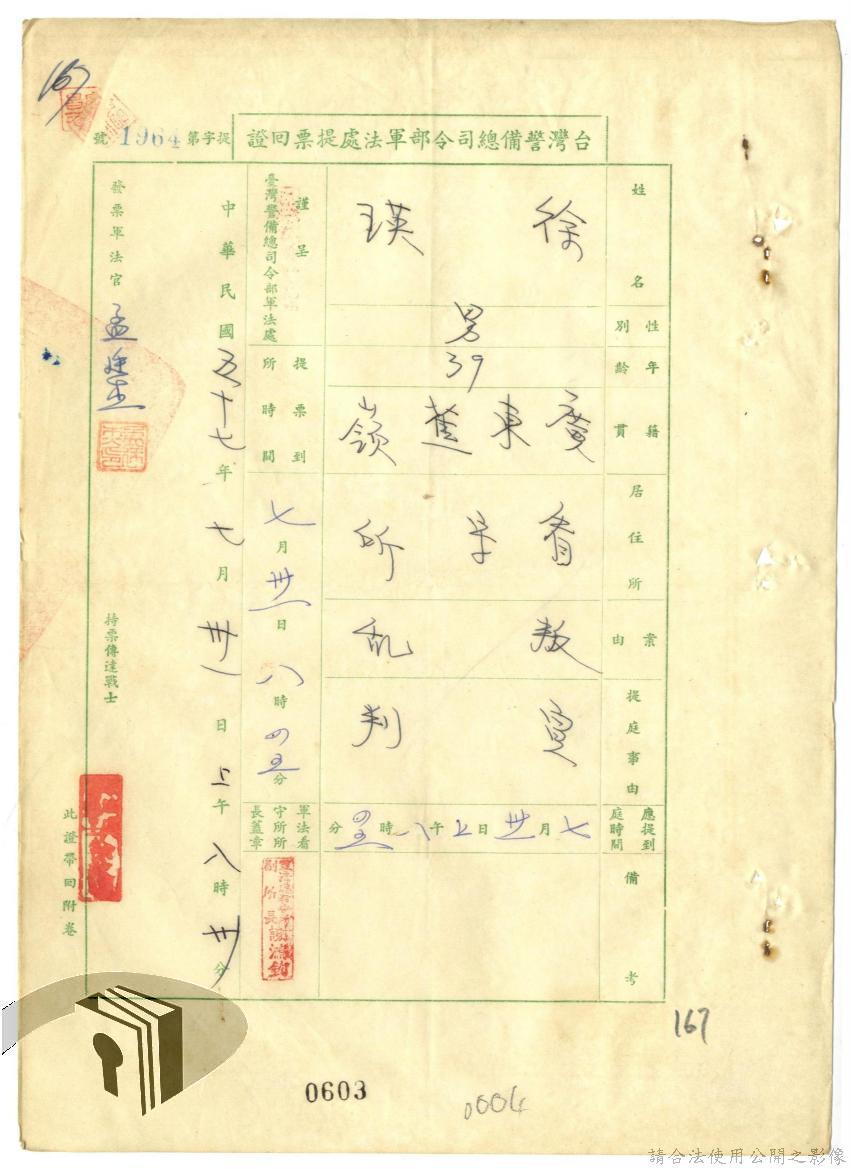 台灣警備總司令部軍法處提票回證
提字第1964號
姓名
徐瑛
性別
男
年齡
39
籍貫
廣東蕉嶺
居住所
看守所
案由
叛乱
提庭事由
宣判
應提到庭時間
七月卅一日上午八時
分
備考
謹呈
臺灣警備總司令部軍法處
提票到所時間
七月卅一日八時四五分
軍法看守所所長蓋章
副所長
中華民國五十七年七月卅一日上午八時卅分
發票軍法官
孟廷杰
持票傳達戰士
此證帶回附卷
167
167
0603
0004
請合法使用公開之影像